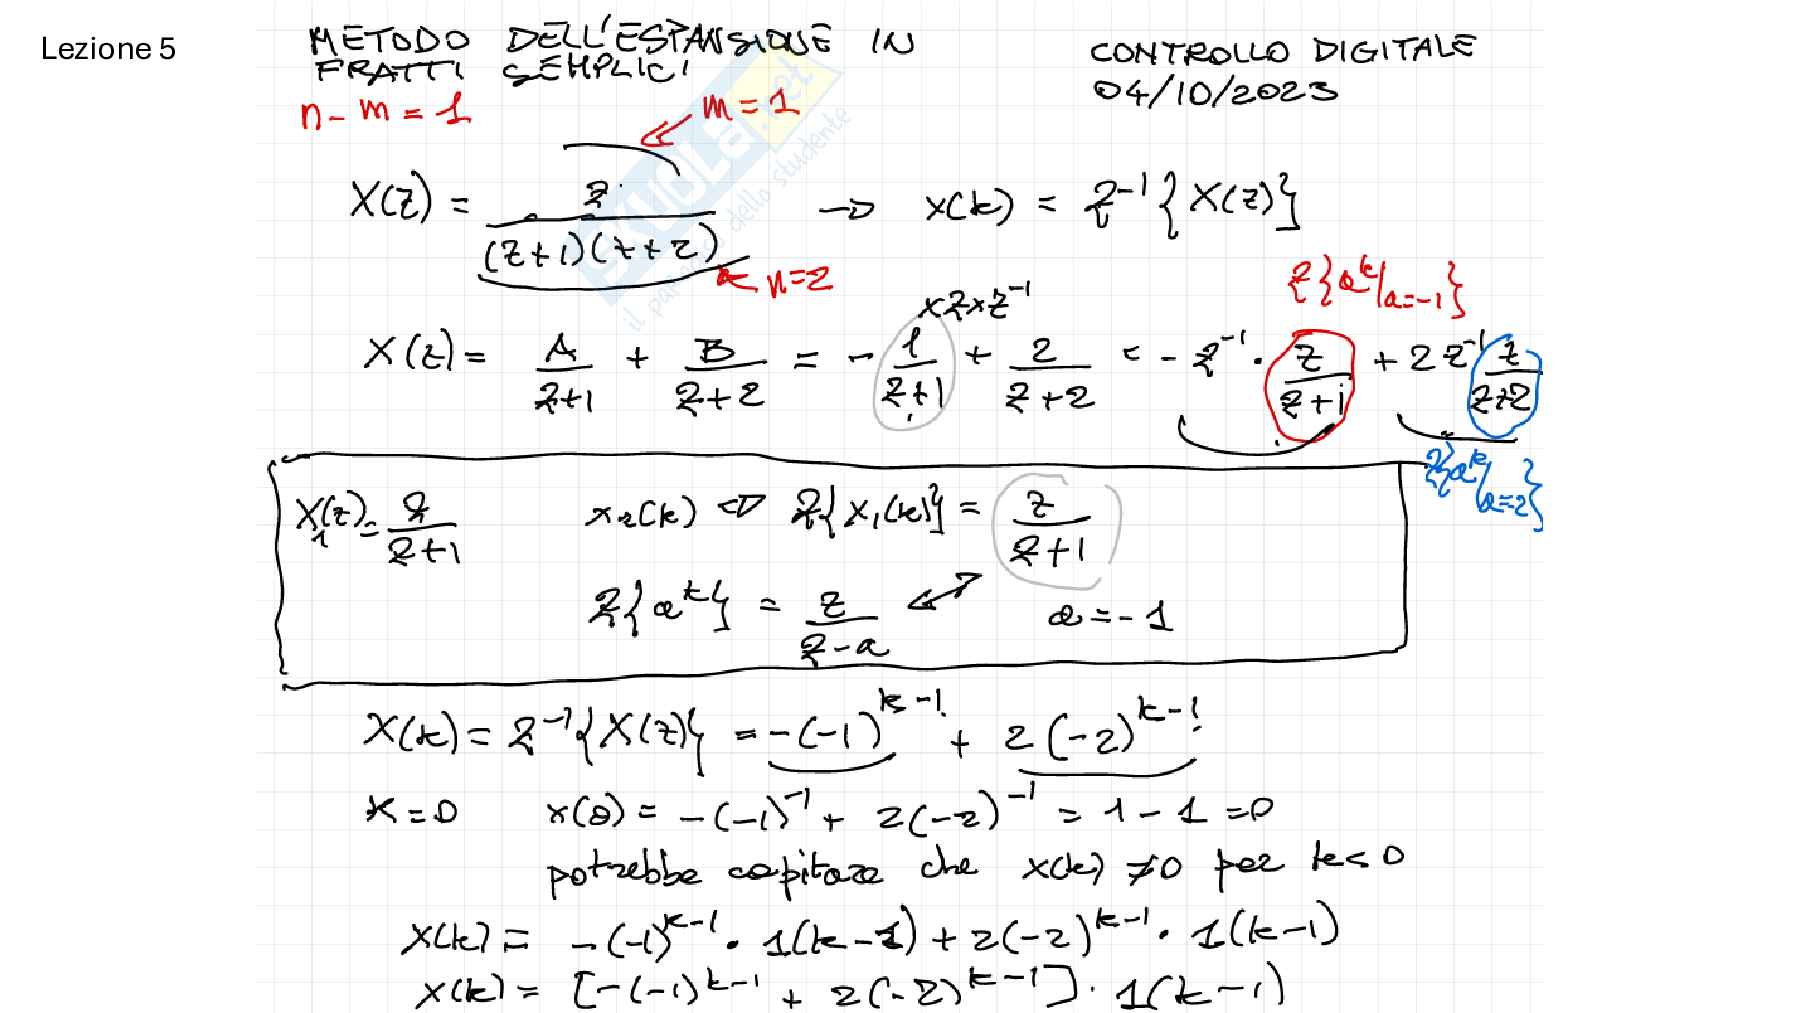 Lezione 5
METODO DELL'ESPANSIONE IN
FRATTI SEMPLICI
CONTROLLO DIGITALE
04/10/2023
n - m = 1
m = 1
X(z) = z / ((z+1)(z+2)) → x(k) = Z⁻¹{X(z)}
n=2
x z x z⁻¹
Z{aᵏ/a=-1}
X(z) = A/(z+1) + B/(z+2) = - 1/(z+1) + 2/(z+2) = - z⁻¹ · z/(z+1) + 2 z⁻¹ z/(z+2)
Z{aᵏ/a=2}
X₁(z) = z/(z+1) x₁(k) ⇔ Z{x₁(k)} = z/(z+1)
Z{aᵏ} = z/(z-a) ↔ a = -1
X(k) = Z⁻¹{X(z)} = -(-1)ᵏ⁻¹ + 2(-2)ᵏ⁻¹
K=0 x(0) = -(-1)⁻¹ + 2(-2)⁻¹ = 1 - 1 = 0
potrebbe capitare che x(k) ≠0 per k<0
X(k) = -(-1)ᵏ⁻¹ · 1(k-1) + 2(-2)ᵏ⁻¹ · 1(k-1)
x(k) = [-(-1)ᵏ⁻¹ + 2(-2)ᵏ⁻¹] · 1(k-1)
SKUOLA.net